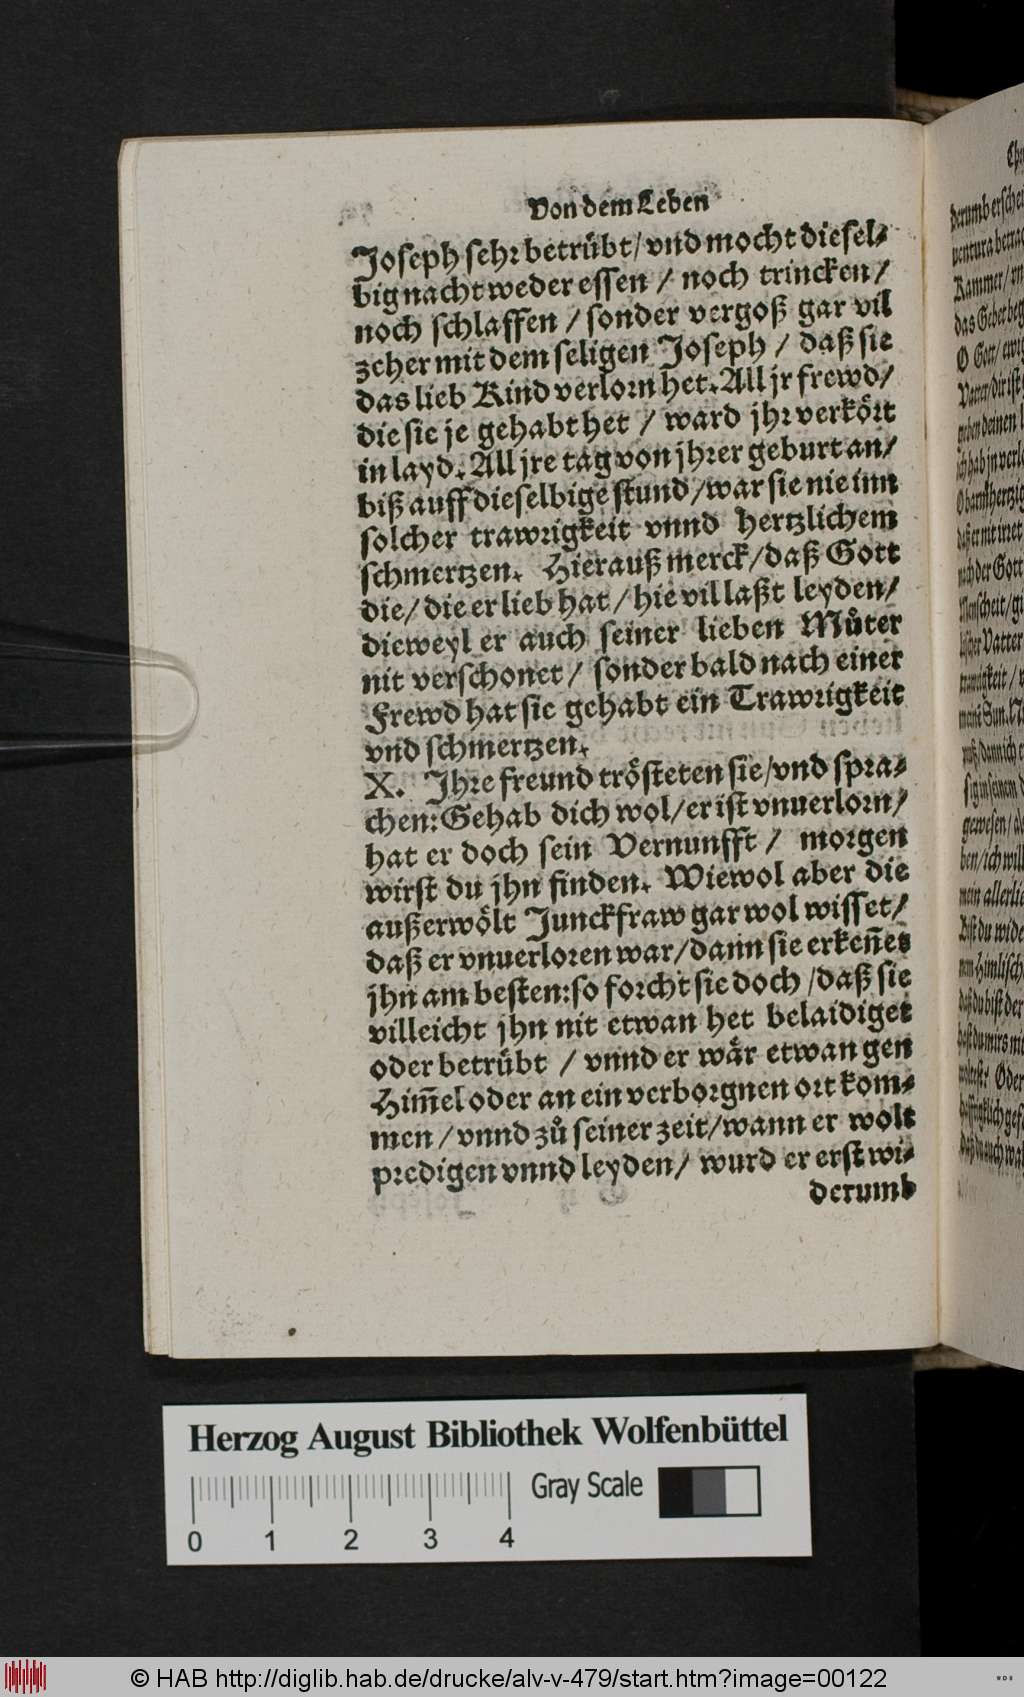 Von dem Leben
Joseph sehr betrübt/ vnd mocht diesel-
big nacht weder essen / noch trincken /
noch schlaffen / sonder vergoß gar vil
zcher mit dem seligen Joseph / daß sie
das lieb Kind verlorn het. All jr frewd/
die sie je gehabt het / ward jhr verkört
in layd. All jre tag von jhrer geburt an/
biß auff dieselbige stund /war sie nie inn
solcher trawrigkeit vnnd hertzlichem
schmertzen. Hierauß merck/daß Gott
die/ die er lieb hat / hie vil laßt leyden/
dieweyl er auch seiner lieben Můter
nit verschonet / sonder bald nach einer
Frewd hat sie gehabt ein Trawrigkeit
vnd schmertzen.
X. Jhre freund trösteten sie/vnd spra-
chen: Gehab dich wol/er ist vnuerlorn/
hat er doch sein Vernunfft / morgen
wirst du jhn finden. Wiewol aber die
außerwölt Junckfraw gar wol wisset/
daß er vnuerloren war/dann sie erkeñet
jhn am besten: so forcht sie doch /daß sie
villeicht jhn nit etwan het belaidiget
oder betrübt / vnnd er wär etwan gen
Him̃el oder an ein verborgnen ort kom-
men /vnnd zů seiner zeit/wann er wolt
predigen vnnd leyden/ wurd er erst wi-
derumb
derumb
Kammer/
das Gebet
O Gott/
Herzog August Bibliothek Wolfenbüttel
Gray Scale
0 1 2 3 4
© HAB http://diglib.hab.de/drucke/alv-v-479/start.htm?image=00122